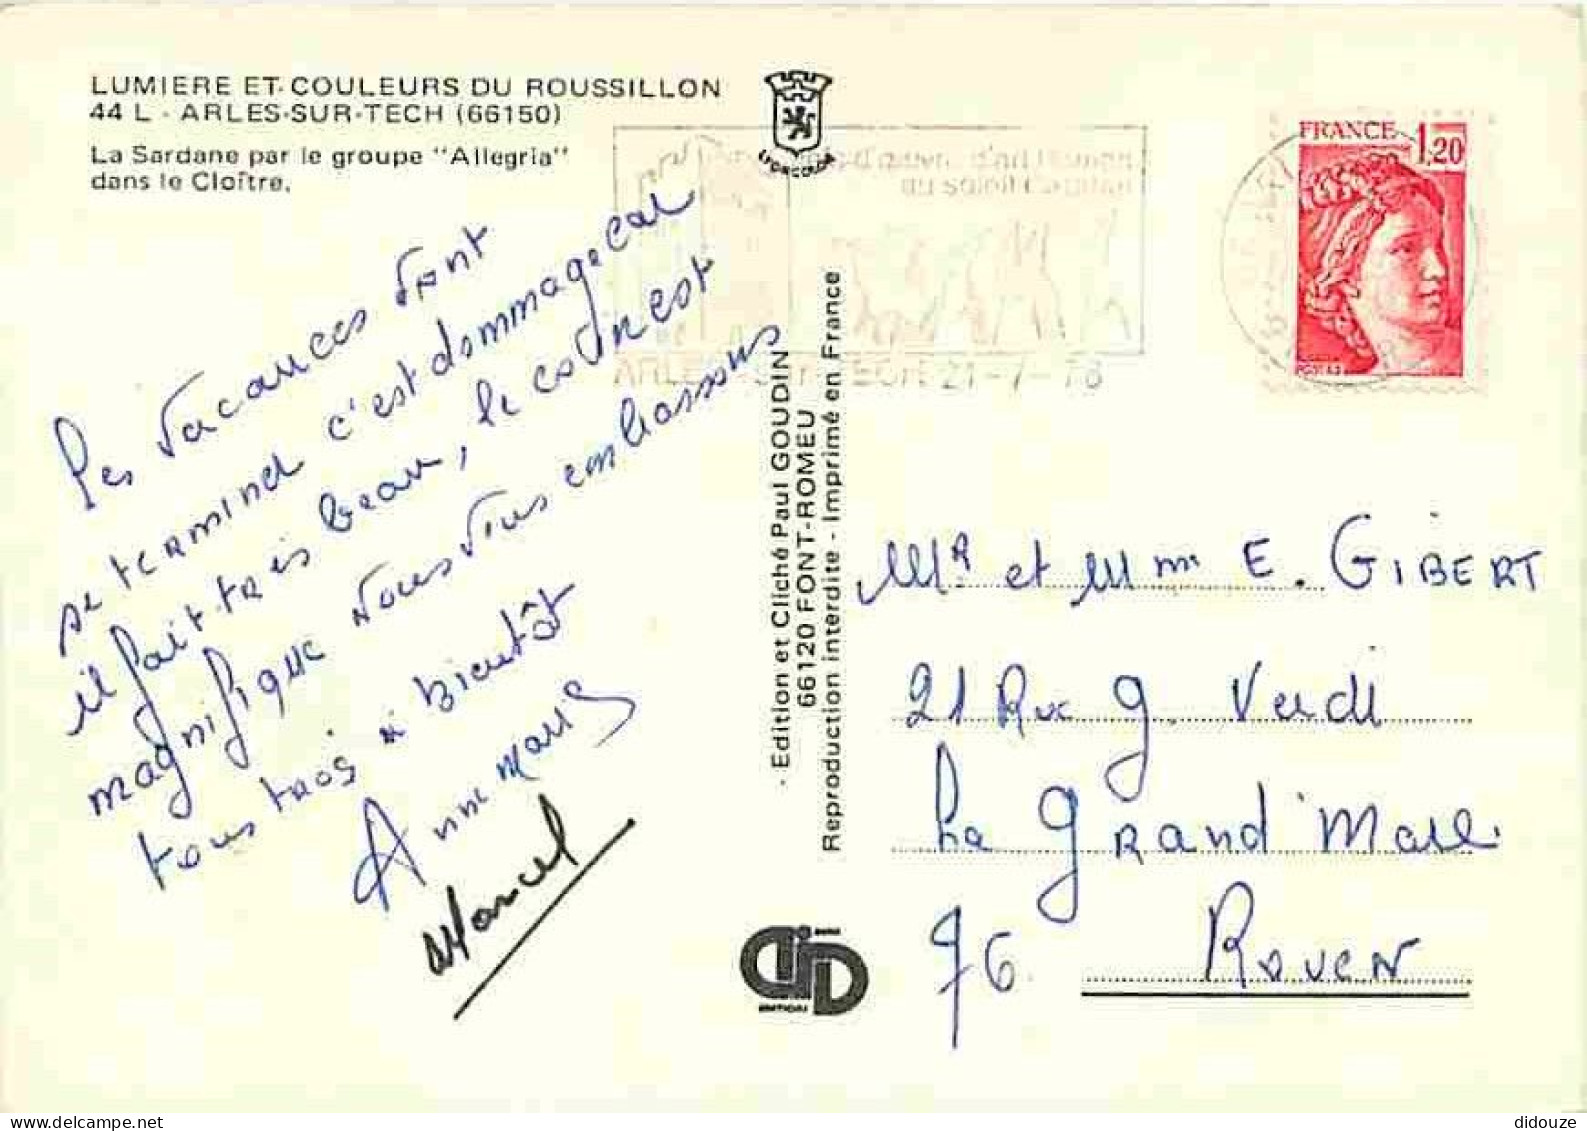 LUMIERE ET COULEURS DU ROUSSILLON
44 L - ARLES-SUR-TECH (66150)
La Sardane par le groupe "Allegria"
dans le Cloître.
LYONCOLOR
FRANCE 1,20
au soleil
ARLES-SUR-TECH 21-7-78
Les vacances vont
se terminer c'est dommage car
il fait très beau, le coin est
magnifique nous vous embrassons
tous trois à bientôt
Anne Marie
Marcel
- Edition et Cliché Paul GOUDIN
66120 FONT-ROMEU
Reproduction interdite - Imprimé en France
Mr et Mme E. GIBERT
21 Rue G. Verdi
La Grand Mare
76 ROUEN
EDITION
didouze